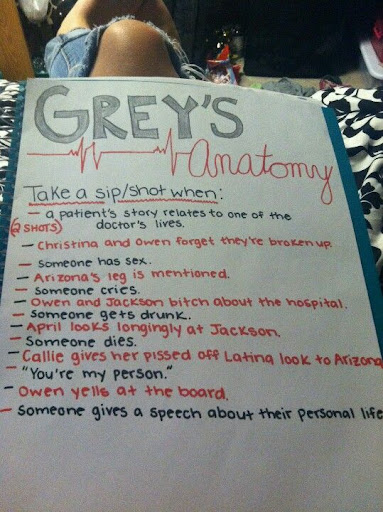 GREY'S
Anatomy
Take a sip/shot when:
- a patient's story relates to one of the
(2 SHOTS) doctor's lives.
- Christina and Owen forget they're broken up.
- someone has sex.
- Arizona's leg is mentioned.
- someone cries.
- Owen and Jackson bitch about the hospital.
- someone gets drunk.
- April looks longingly at Jackson.
- Someone dies.
- Callie gives her pissed off Latina look to Arizona
- "You're my person."
- Owen yells at the board.
- Someone gives a speech about their personal life